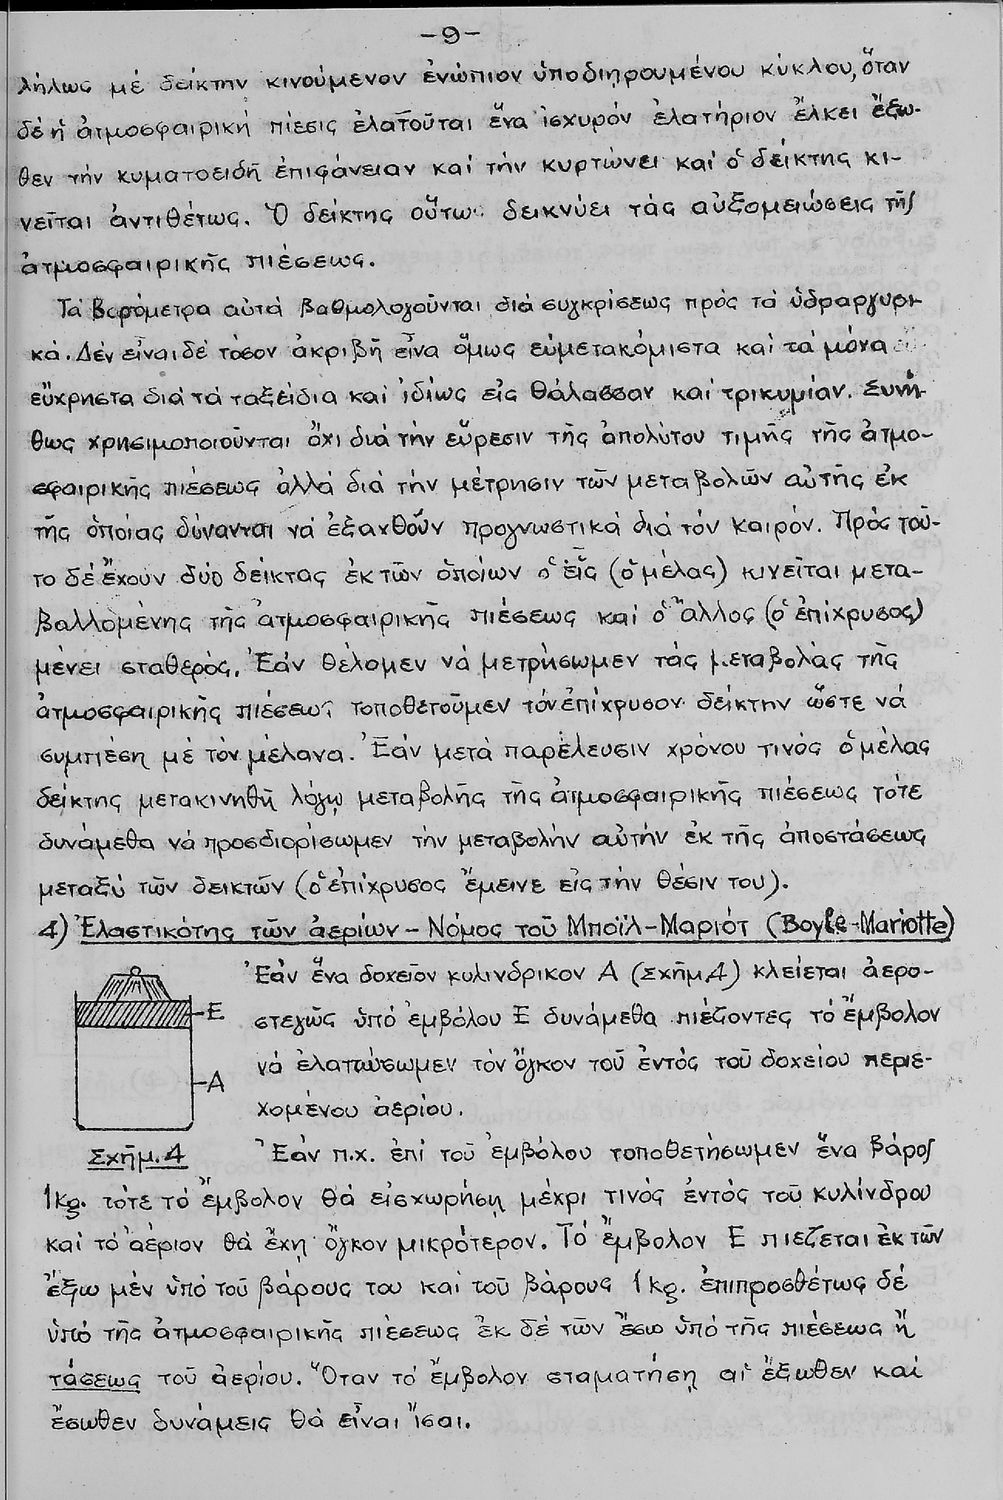 -9-
λήλως μέ δείκτην κινούμενον ἐνώπιον ὑποδιῃρουμένου κύκλου, ὅταν
δέ ἡ ἀτμοσφαιρική πίεσις ἐλατοῦται ἕνα ἰσχυρόν ἐλατήριον ἕλκει ἔξω-
θεν τήν κυματοειδῆ ἐπιφάνειαν καί τήν κυρτώνει καί ὁ δείκτης κι-
νεῖται ἀντιθέτως. Ὁ δείκτης οὕτω δεικνύει τάς αὐξομειώσεις τῆς
ἀτμοσφαιρικῆς πιέσεως.
Τά βαρόμετρα αὐτά βαθμολογοῦνται διά συγκρίσεως πρός τά ὑδραργυρι-
κά. Δέν εἶναι δέ τόσον ἀκριβῆ εἶνα ὅμως εὐμετακόμιστα καί τά μόνα
εὔχρηστα διά τά ταξείδια καί ἰδίως εἰς θάλασσαν καί τρικυμίαν. Συνή-
θως χρησιμοποιοῦνται ὄχι διά τήν εὕρεσιν τῆς ἀπολύτου τιμῆς τῆς ἀτμο-
σφαιρικῆς πιέσεως ἀλλά διά τήν μέτρησιν τῶν μεταβολῶν αὐτῆς ἐκ
τῆς ὁποίας δύνανται νά ἐξαχθοῦν προγνωστικά διά τόν καιρόν. Πρός τοῦ-
το δέ ἔχουν δύο δείκτας ἐκ τῶν ὁποίων ὁ εἷς (ὁ μέλας) κινεῖται μετα-
βαλλομένης τῆς ἀτμοσφαιρικῆς πιέσεως καί ὁ ἄλλος (ὁ ἐπίχρυσος)
μένει σταθερός. Ἐάν θέλομεν νά μετρήσωμεν τάς μεταβολάς τῆς
ἀτμοσφαιρικῆς πιέσεως τοποθετοῦμεν τόν ἐπίχρυσον δείκτην ὥστε νά
συμπέσῃ μέ τόν μέλανα. Ἐάν μετά παρέλευσιν χρόνου τινός ὁ μέλας
δείκτης μετακινηθῇ λόγῳ μεταβολῆς τῆς ἀτμοσφαιρικῆς πιέσεως τότε
δυνάμεθα νά προσδιορίσωμεν τήν μεταβολήν αὐτήν ἐκ τῆς ἀποστάσεως
μεταξύ τῶν δεικτῶν (ὁ ἐπίχρυσος ἔμεινε εἰς τήν θέσιν του).
4) Ἐλαστικότης τῶν ἀερίων – Νόμος τοῦ Μποϊλ-Μαριότ (Boyle-Mariotte)
Ἐάν ἕνα δοχεῖον κυλινδρικον Α (Σχῆμ.4) κλείεται ἀερο-
στεγῶς ὑπό ἐμβόλου Ε δυνάμεθα πιέζοντες τό ἔμβολον
νά ἐλαττώσωμεν τόν ὄγκον τοῦ ἐντός τοῦ δοχείου περιε-
χομένου ἀερίου.
Ε
Α
Σχῆμ.4
Ἐάν π.χ. ἐπί τοῦ ἐμβόλου τοποθετήσωμεν ἕνα βάρος
1kg. τότε τό ἔμβολον θά εἰσχωρήσῃ μέχρι τινός ἐντός τοῦ κυλίνδρου
καί τό ἀέριον θά ἔχῃ ὄγκον μικρότερον. Τό ἔμβολον Ε πιέζεται ἐκ τῶν
ἔξω μέν ὑπό τοῦ βάρους του καί τοῦ βάρους 1kg. ἐπιπροσθέτως δέ
ὑπό τῆς ἀτμοσφαιρικῆς πιέσεως ἐκ δέ τῶν ἔσω ὑπό τῆς πιέσεως ἤ
τάσεως τοῦ ἀερίου. Ὅταν τό ἔμβολον σταματήσῃ αἱ ἔξωθεν καί
ἔσωθεν δυνάμεις θά εἶναι ἴσαι.